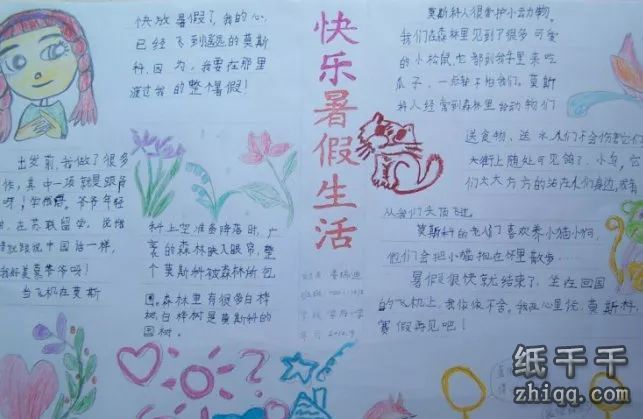 快乐暑假生活
快放暑假了,我的心
已经飞到遥远的莫斯
科,因为,我要在那里
渡过我的整个暑假!
出发前,我做了很多
作,其中一项就是跟爷
呀!学俄语。爷爷年轻
在苏联留学,说俄
跟说中国话一样,
我好羡慕爷爷啊!
当飞机在莫斯
科上空准备降落时,广
袤的森林映入眼帘,整
个莫斯科被森林所包
围。森林里有很多白桦
树,白桦树是莫斯科的
国树。
莫斯科人很爱护小动物。
我们在森林里见到了很多可爱
的小松鼠,它都到我手里来吃
瓜子,一点都不怕我们。莫斯
科人经常到森林里给动物们
送食物、送水,人们不会伤害它们
大街上随处可见鸽子、小鸟,它
们大大方方的站在人们身边,或者
从我们头顶飞过。
莫斯科的老婆了喜欢养小猫小狗,
他们会把小猫抱在怀里散步。
暑假很快就结束了,坐在回国
的飞机上,我依依不舍。我在心里说,莫斯科,
暑假再见吧!
纸千千
zhiqq.com